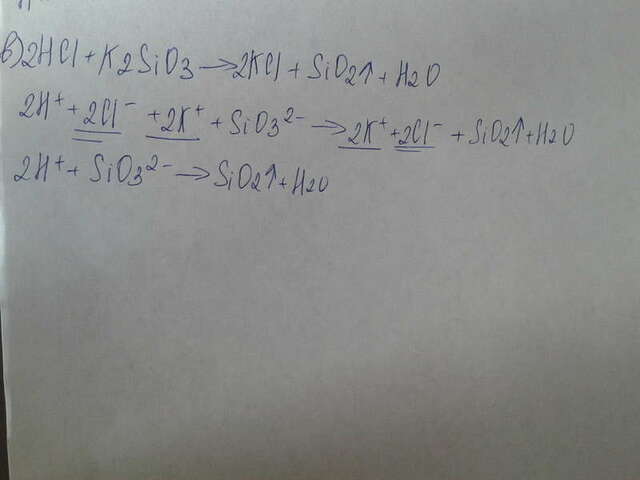 в) 2HCl + K2SiO3 → 2KCl + SiO2↑ + H2O
2H⁺ + 2Cl⁻ + 2K⁺ + SiO3²⁻ → 2K⁺ + 2Cl⁻ + SiO2↑ + H2O
2H⁺ + SiO3²⁻ → SiO2↑ + H2O